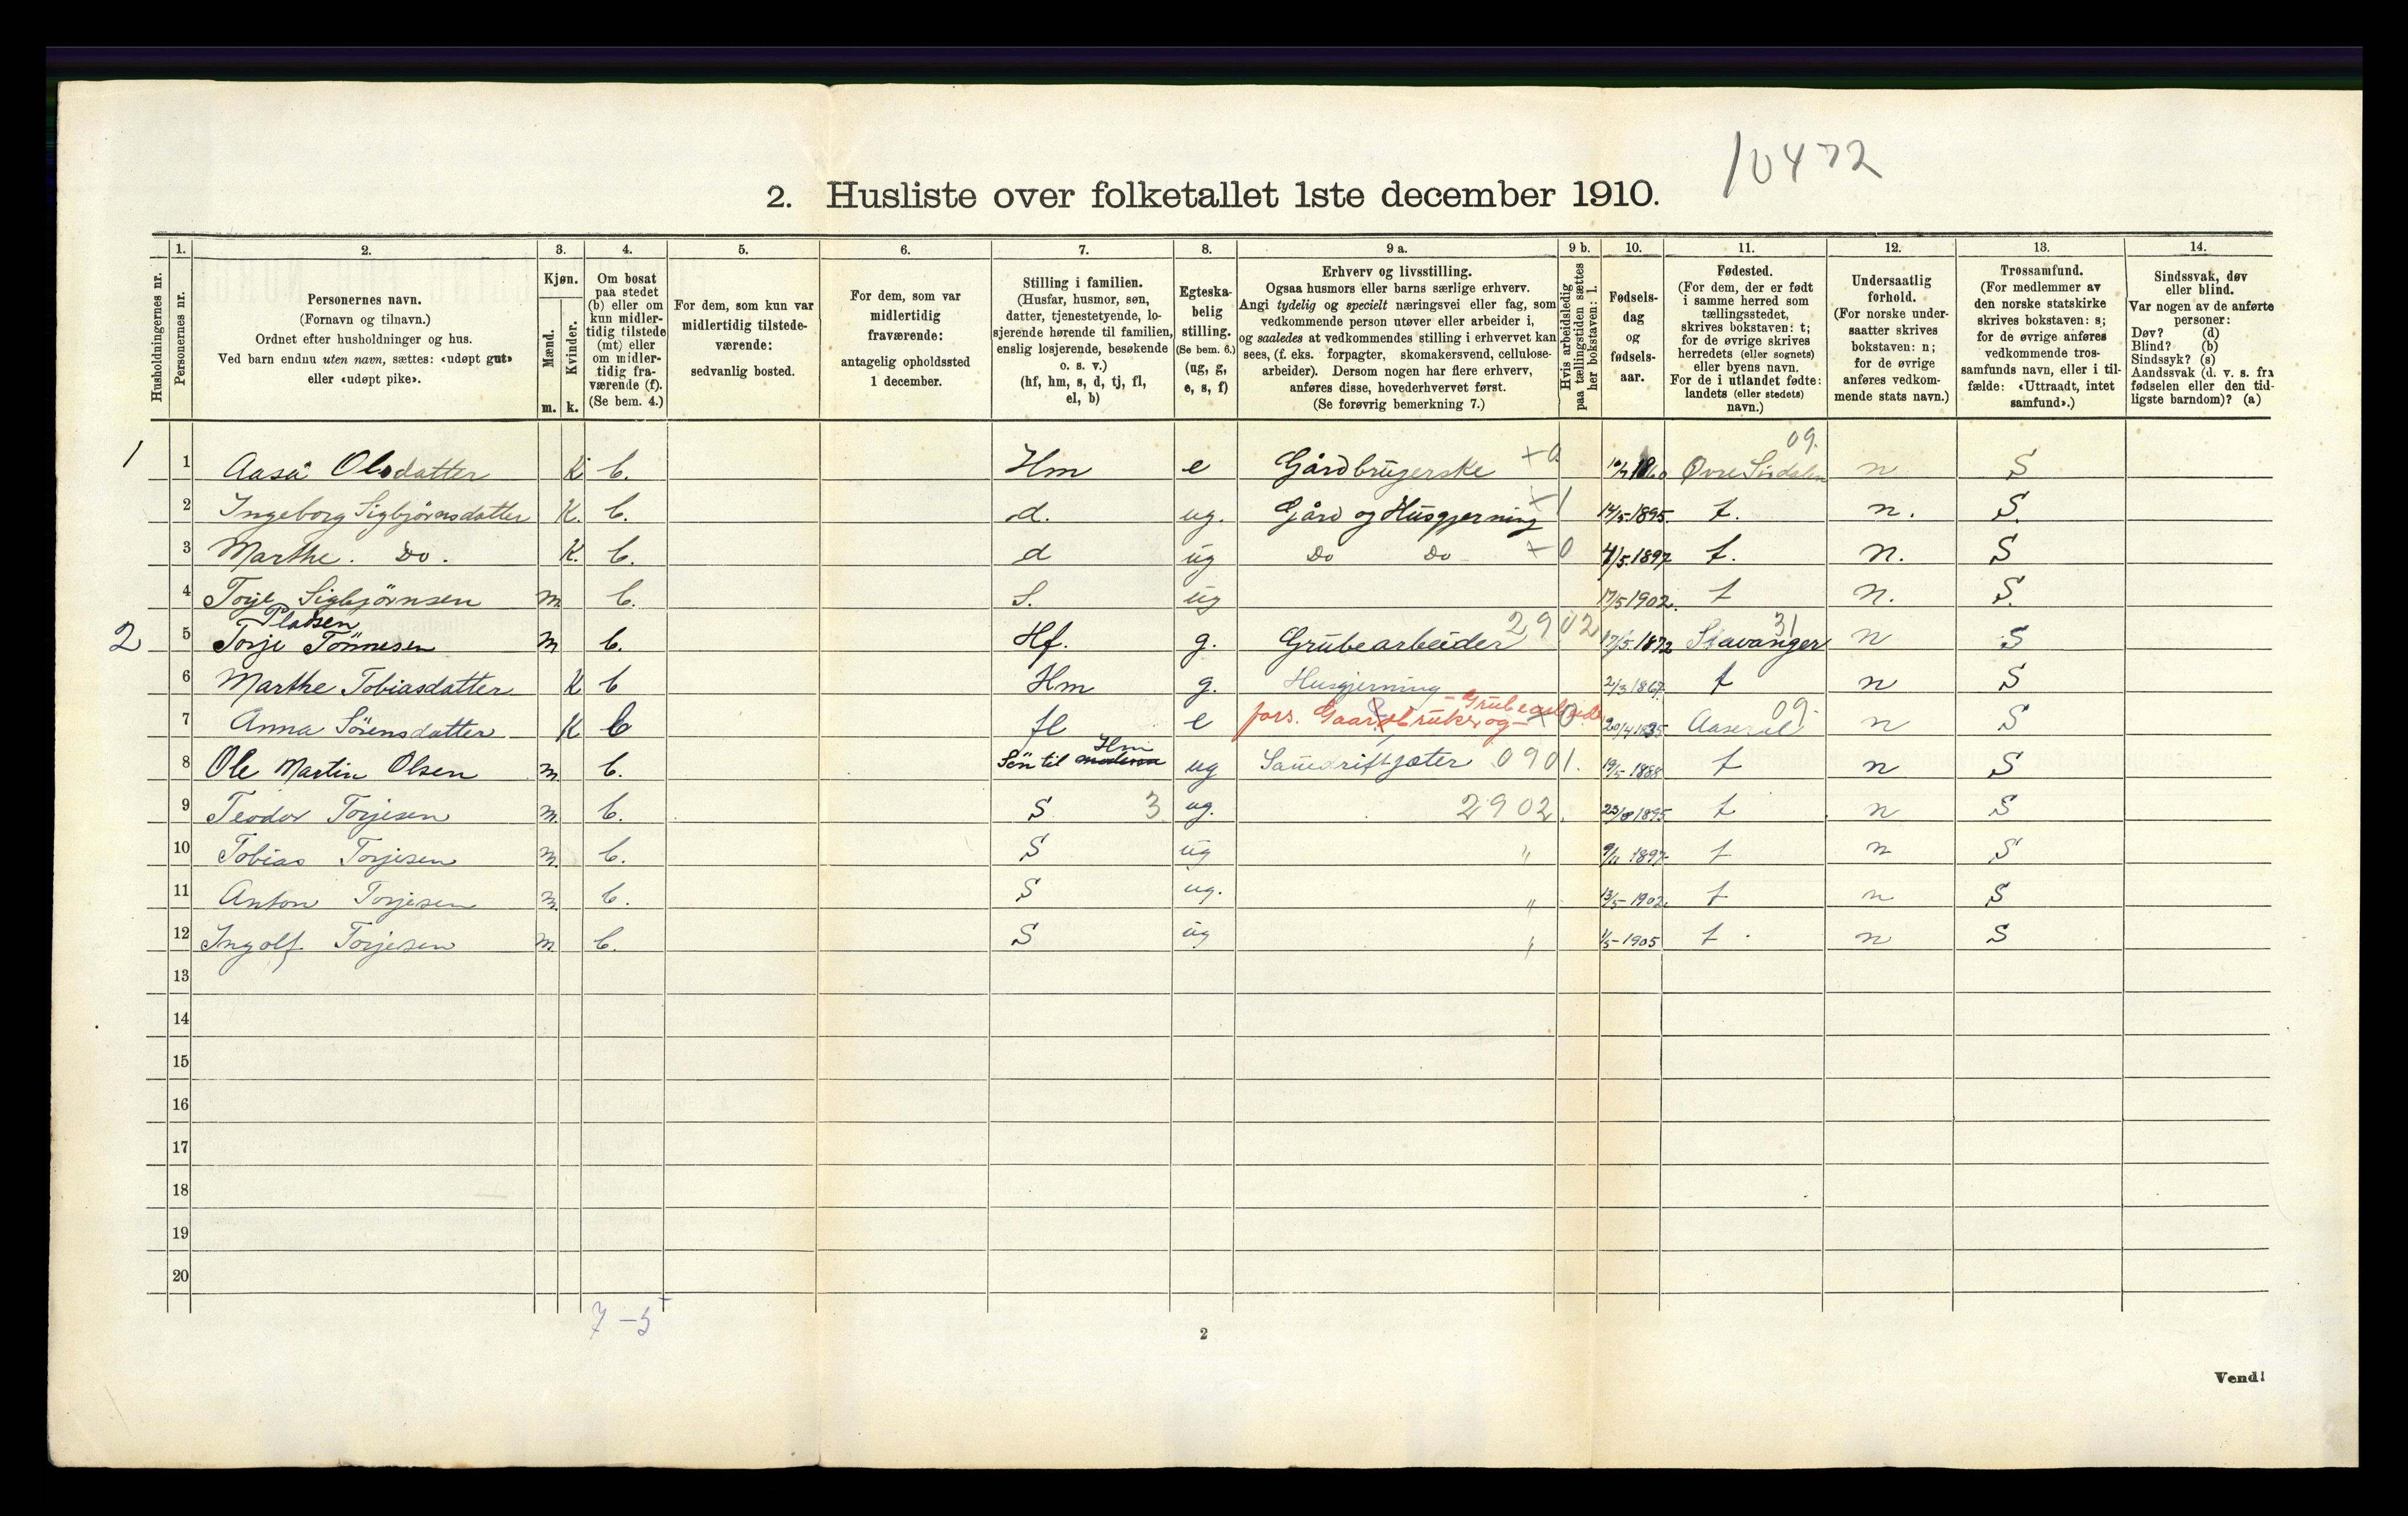 10472
2. Husliste over folketallet 1ste december 1910.
Husholdningernes nr.
1. Personernes nr.
2. Personernes navn. (Fornavn og tilnavn.) Ordnet efter husholdninger og hus. Ved barn endnu uten navn, sættes: «udøpt gut» eller «udøpt pike».
3. Kjøn. Mænd. m. Kvinder. k.
4. Om bosat paa stedet (b) eller om kun midlertidig tilstede (mt) eller om midlertidig fraværende (f). (Se bem. 4.)
5. For dem, som kun var midlertidig tilstedeværende: sedvanlig bosted.
6. For dem, som var midlertidig fraværende: antagelig opholdssted 1 december.
7. Stilling i familien. (Husfar, husmor, søn, datter, tjenestetyende, losjerende hørende til familien, enslig losjerende, besøkende o. s. v.) (hf, hm, s, d, tj, fl, el, b)
8. Egteskabelig stilling. (Se bem. 6.) (ug, g, e, s, f)
9 a. Erhverv og livsstilling. Ogsaa husmors eller barns særlige erhverv. Angi tydelig og specielt næringsvei eller fag, som vedkommende person utøver eller arbeider i, og saaledes at vedkommendes stilling i erhvervet kan sees, (f. eks. forpagter, skomakersvend, cellulosearbeider). Dersom nogen har flere erhverv, anføres disse, hovederhvervet først. (Se forøvrig bemerkning 7.)
9 b. Hvis arbeidsledig paa tællingstiden sættes her bokstaven: l.
10. Fødselsdag og fødselsaar.
11. Fødested. (For dem, der er født i samme herred som tællingsstedet, skrives bokstaven: t; for de øvrige skrives herredets (eller sognets) eller byens navn. For de i utlandet fødte: landets (eller stedets) navn.)
12. Undersaatlig forhold. (For norske undersaatter skrives bokstaven: n; for de øvrige anføres vedkommende stats navn.)
13. Trossamfund. (For medlemmer av den norske statskirke skrives bokstaven: s; for de øvrige anføres vedkommende trossamfunds navn, eller i tilfælde: «Uttraadt, intet samfund».)
14. Sindssvak, døv eller blind. Var nogen av de anførte personer: Døv? (d) Blind? (b) Sindssyk? (s) Aandssvak (d. v. s. fra fødselen eller den tidligste barndom)? (a)
1 1 Aasa Olsdatter K b. Hm e Gårdbrugerske +0 1860 09. Øvre Sirdalen n S
2 Ingeborg Sigbjörnsdatter K. b. d. ug. Gård og Husgjerning +1 14/5-1895. t. n. S.
3 Marthe. Do. K. b. d ug Do Do +0 4/5.1897 t. n. S
4 Torje Sigbjörnsen m. b. S. ug 17/5 1902. t n. S.
Pladsen
2 5 Torje Tönnesen m b. Hf. g. Grubearbeider 2902 17/5.1872 31 Stavanger n S
6 Marthe Tobiasdatter K b Hm g. Husgjerning 2/3 1867. t n S
7 Anna Sörensdatter K b fl e fors. Gaardbruker og Grubearbeide +0 20/4 1835 09. Aaseral n S
8 Ole Martin Olsen m. b. Sön til Hm ug Sauedriftgjæter 0901. 19/5-1888 t n S
9 Teodor Torjesen m. b. S 3 ug. 2902 23/8 1895 t n S
10 Tobias Torjesen m. b. S ug " 9/11 1897 t n S
11 Anton Torjesen m. b. S ug. " 13/5-1902. t n S
12 Ingolf Torjesen m. b. S ug " 1/5-1905 t. n S
13
14
15
16
17
18
19
20
7-5
2
Vend!